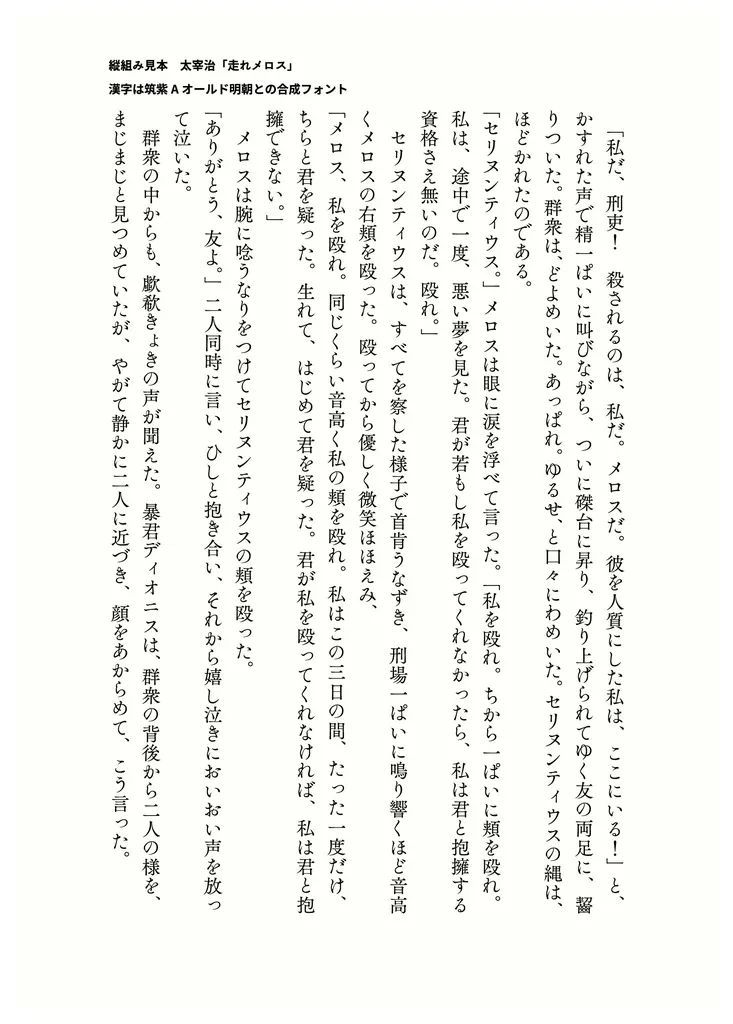 縦組み見本　太宰治「走れメロス」
漢字は筑紫 A オールド明朝との合成フォント
「私だ、刑吏！　殺されるのは、私だ。メロスだ。彼を人質にした私は、ここにいる！」と、
かすれた声で精一ぱいに叫びながら、ついに磔台に昇り、釣り上げられてゆく友の両足に、齧
りついた。群衆は、どよめいた。あっぱれ。ゆるせ、と口々にわめいた。セリヌンティウスの縄は、
ほどかれたのである。
「セリヌンティウス。」メロスは眼に涙を浮べて言った。「私を殴れ。ちから一ぱいに頬を殴れ。
私は、途中で一度、悪い夢を見た。君が若もし私を殴ってくれなかったら、私は君と抱擁する
資格さえ無いのだ。殴れ。」
セリヌンティウスは、すべてを察した様子で首肯うなずき、刑場一ぱいに鳴り響くほど音高
くメロスの右頬を殴った。殴ってから優しく微笑ほほえみ、
「メロス、私を殴れ。同じくらい音高く私の頬を殴れ。私はこの三日の間、たった一度だけ、
ちらと君を疑った。生れて、はじめて君を疑った。君が私を殴ってくれなければ、私は君と抱
擁できない。」
メロスは腕に唸うなりをつけてセリヌンティウスの頬を殴った。
「ありがとう、友よ。」二人同時に言い、ひしと抱き合い、それから嬉し泣きにおいおい声を放っ
て泣いた。
群衆の中からも、歔欷きょきの声が聞えた。暴君ディオニスは、群衆の背後から二人の様を、
まじまじと見つめていたが、やがて静かに二人に近づき、顔をあからめて、こう言った。